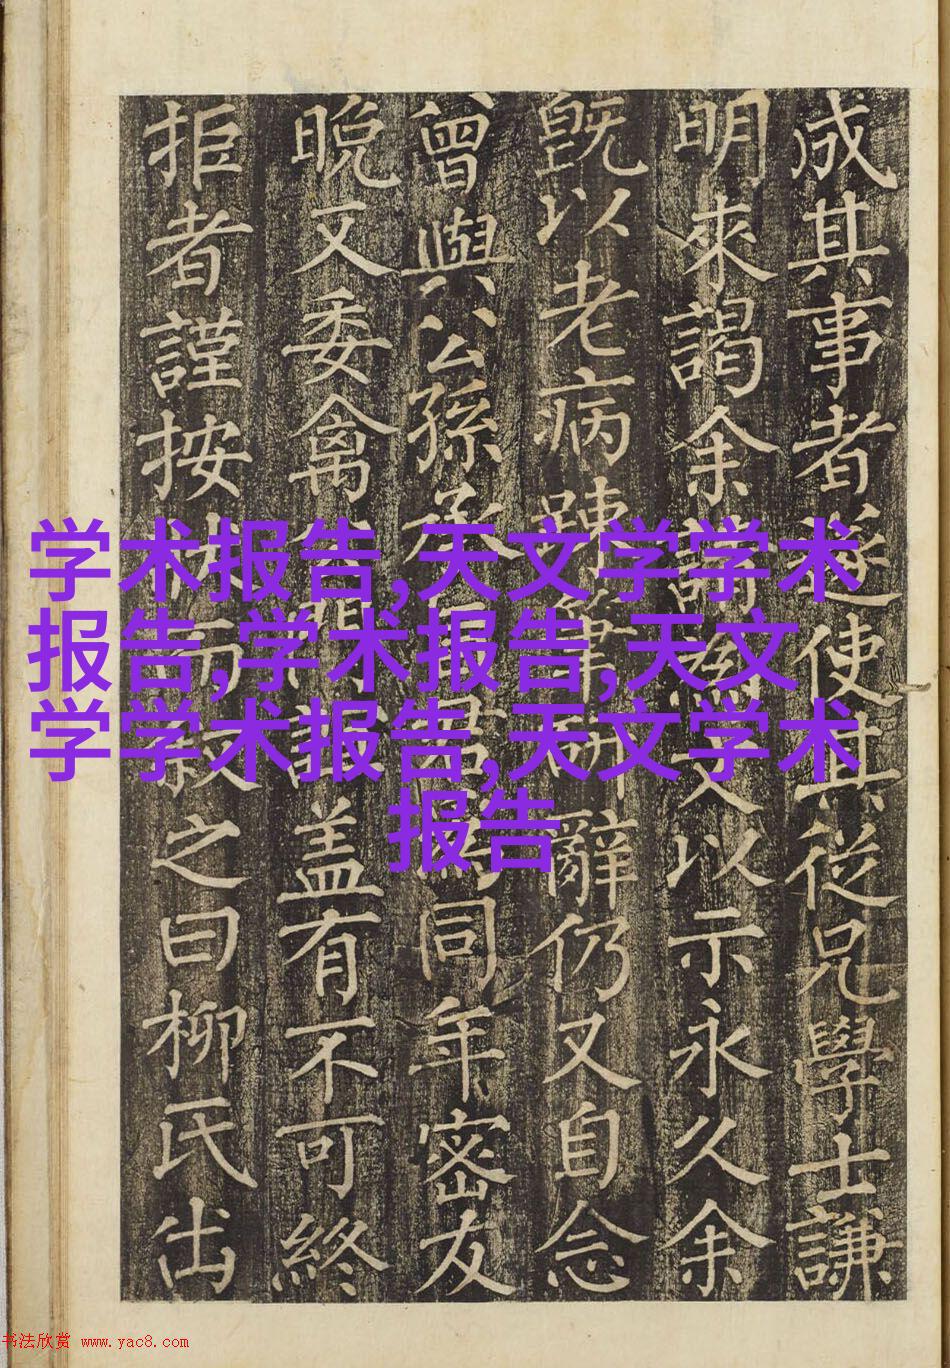 成其事者遂使其從兄學士謙
明來謁余請為文以示永久余
既以老病踈筆研辭仍又自念
曾與公孫丞同年密友
晚又委禽盖有不可終
拒者謹按而叙之曰柳氏出
学术报告,天文学学术
报告,学术报告,天文
学学术报告,天文学术
报告
书法欣赏 www.yac8.com